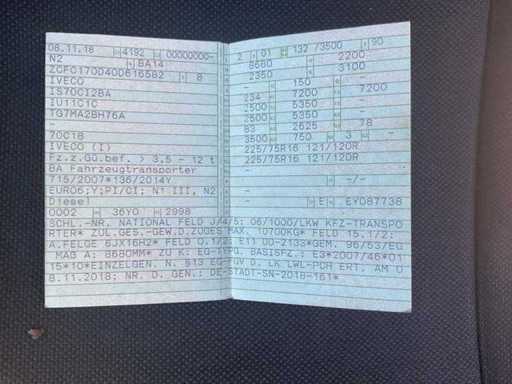 08.11.18 4192 00000000-
N2 BA14
ZCFC170D40D616582 8
IVECO
IS70CI2BA
IU11C1C
TG7MA2BH76A
-
70C18
IVECO (I)
Fz.z.Gü.bef. > 3.5 - 12 t
BA Fahrzeugtransporter
715/2007*136/2014Y
EURO6;Y;PI/CI; N1 III, N2
Diesel
0002 36Y0 2998
2 01 132 /3500 90
8680 2200
2350 3100
- 150 -
234 7200 7200
2500 5350 -
2500 5350 -
83 2625 78
3500 750 3 -
225/75R16 121/120R
225/75R16 121/120R
- -/-
- E EY087738
SCHL.-NR. NATIONAL FELD J/4/5: 06/1000/LKW KFZ-TRANSPO
RTER* ZUL.GES.-GEW.D.ZUGES MAX. 10700KG* FELD 15.1/2:
A.FELGE 6JX16H2* FELD O.1/2: E11 00-2133*GEM. 96/53/EG
MAß A: 8680MM* ZU K: EG-TYPG. BASISFZ.: E3*2007/46*01
15*10*EINZELGEN. N. §13 EG-FGV D. LK LWL-PCH ERT. AM 0
8.11.2018; NR. D. GEN.: DE-STADT-SN-2018-161*